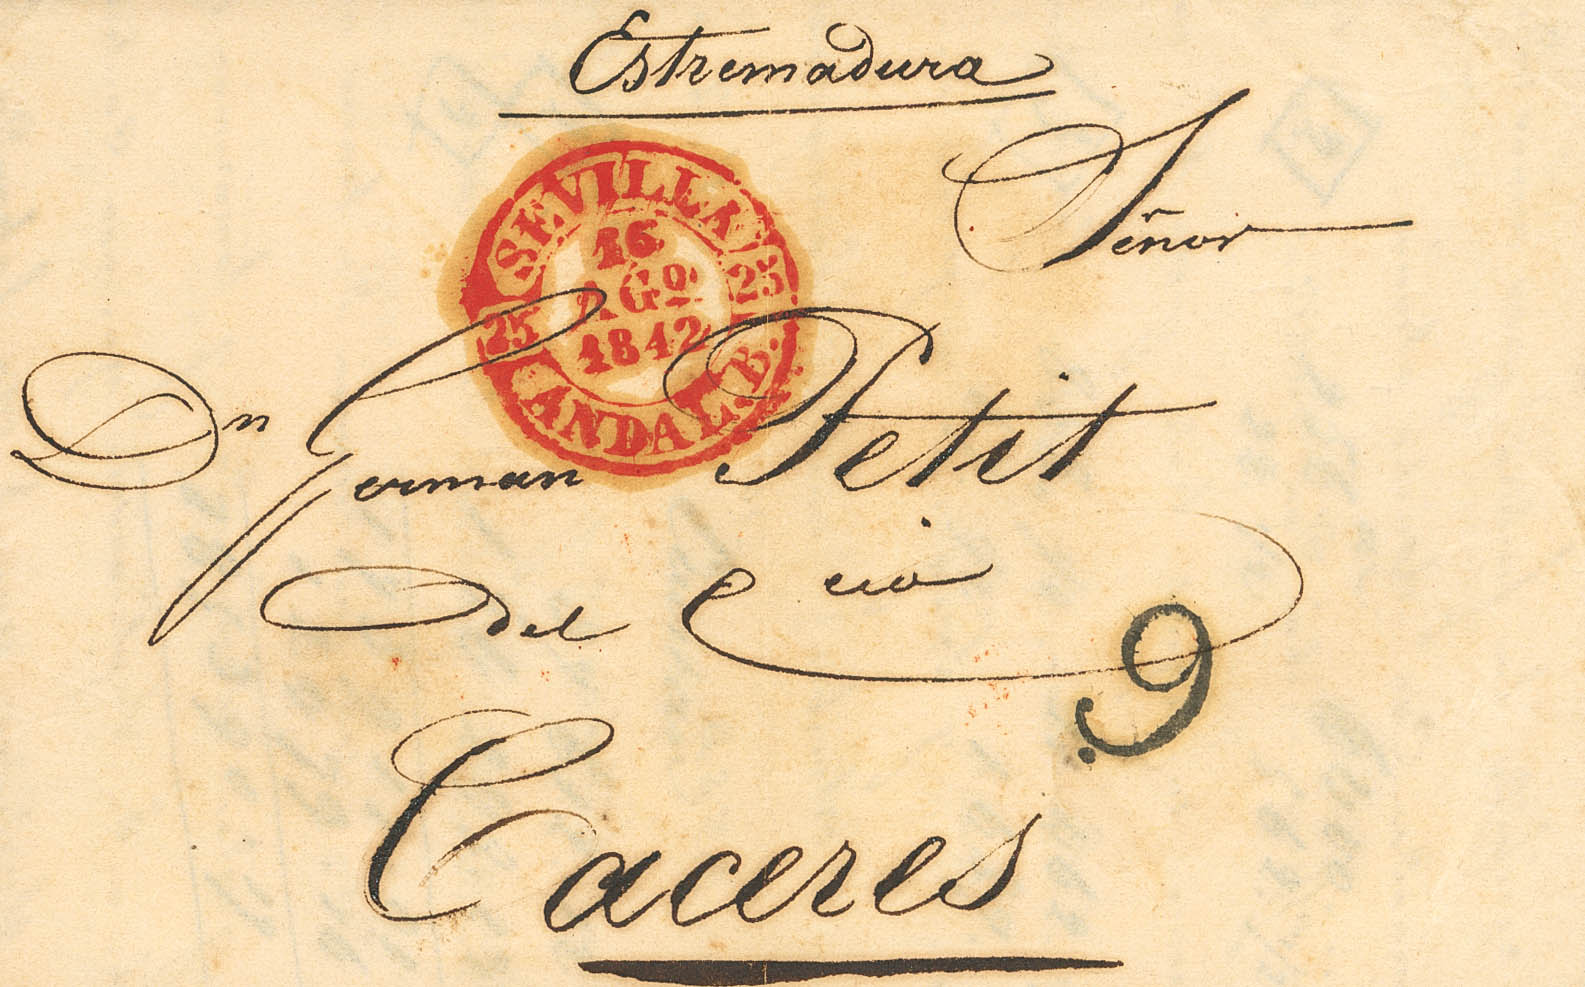 Estremadura
Señor
SEVILLA
16
AGO.
1842
25
25
ANDAL. B.
Dn German Petit
del Ccio
9
Caceres